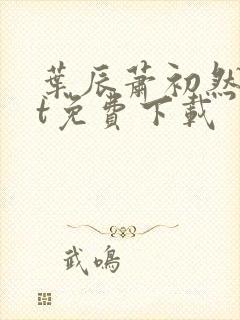 葉辰蕭初然
t免費下載
武鳴